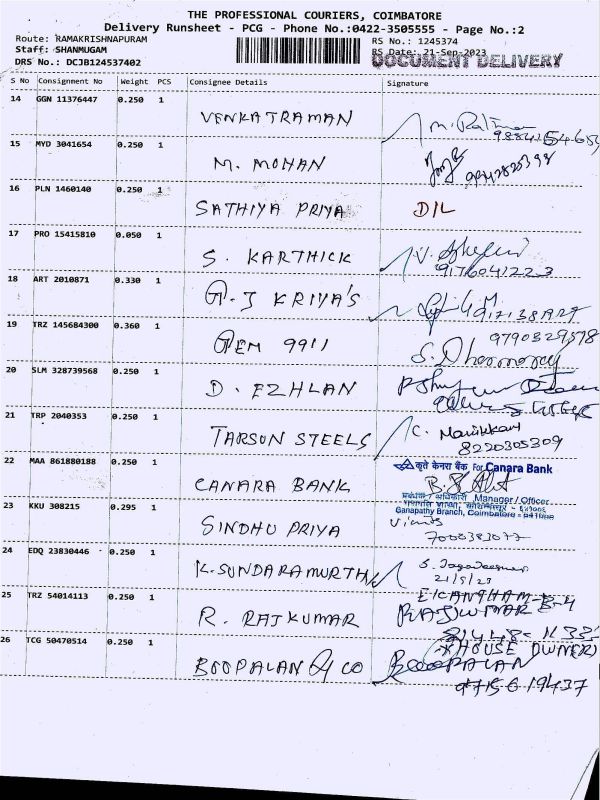 THE PROFESSIONAL COURIERS, COIMBATORE
Delivery Runsheet - PCG - Phone No.:0422-3505555 - Page No.:2
Route: RAMAKRISHNAPURAM RS No.: 1245374
Staff: SHANMUGAM RS Date: 21-Sep-2023
DOCUMENT DELIVERY
DRS No.: DCJB124537402
S No Consignment No Weight PCS Consignee Details Signature
14 GGN 11376447 0.250 1 VENKATRAMAN
15 MYD 3041654 0.250 1 M. MOHAN
16 PLN 1460140 0.250 1 SATHIYA PRIYA DIL
17 PRO 15415810 0.050 1 S. KARTHICK
9176041223
18 ART 2010871 0.330 1 G.J KRIYA'S
19 TRZ 145684300 0.360 1 GEM 9911 9790329578
20 SLM 328739568 0.250 1 D. EZHLAN
21 TRP 2040353 0.250 1 TARSON STEELS C. Manikkam
8220305309
22 MAA 861880188 0.250 1 CANARA BANK कृते केनरा बैंक For Canara Bank
Manager / Officer
Ganapathy Branch, Coimbatore
23 KKU 308215 0.295 1 SINDHU PRIYA
24 EDQ 23830446 0.250 1 K. SUNDARAMURTHY
21/9/23
25 TRZ 54014113 0.250 1 R. RAJKUMAR RAJKUMAR
HOUSE OWNER)
26 TCG 50470514 0.250 1 BOOPALAN & CO BOOPALAN
9715619437